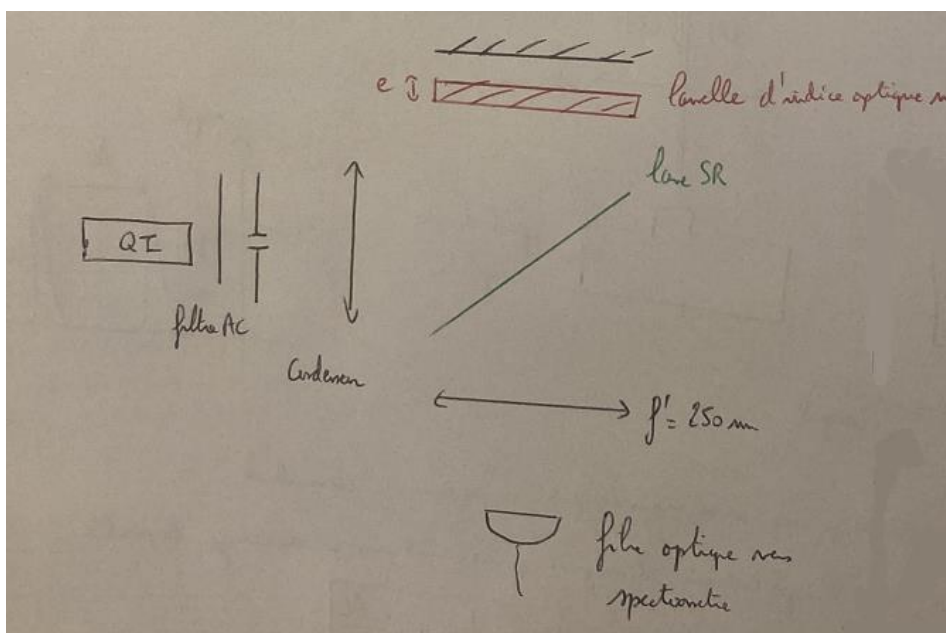 e
lamelle d'indice optique n
lame SR
QI
filtre AC
Condenseur
f' = 250 mm
fibre optique vers
spectromètre